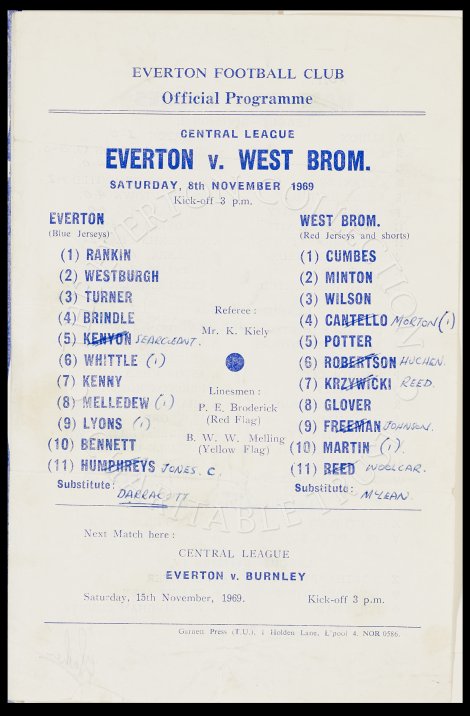 EVERTON FOOTBALL CLUB
Official Programme
CENTRAL LEAGUE
EVERTON v. WEST BROM.
SATURDAY, 8th NOVEMBER 1969
Kick-off 3 p.m.
EVERTON
(Blue Jerseys)
(1) RANKIN
(2) WESTBURGH
(3) TURNER
(4) BRINDLE
(5) KENYON SEARGEANT.
(6) WHITTLE (1)
(7) KENNY
(8) MELLEDEW (1)
(9) LYONS (1)
(10) BENNETT
(11) HUMPHREYS JONES. C.
Substitute:
DARRACOTT
Referee:
Mr. K. Kiely
Linesmen:
P. E. Broderick
(Red Flag)
B. W. W. Melling
(Yellow Flag)
WEST BROM.
(Red Jerseys and shorts)
(1) CUMBES
(2) MINTON
(3) WILSON
(4) CANTELLO MORTON (1)
(5) POTTER
(6) ROBERTSON HUCHEN.
(7) KRZYWICKI REED.
(8) GLOVER
(9) FREEMAN JOHNSON.
(10) MARTIN (1).
(11) REED WOOLCAR.
Substitute:
McLEAN.
Next Match here:
CENTRAL LEAGUE
EVERTON v. BURNLEY
Saturday, 15th November, 1969. Kick-off 3 p.m.
Garnett Press (T.U.), 1 Holden Lane, L'pool 4. NOR 0586.